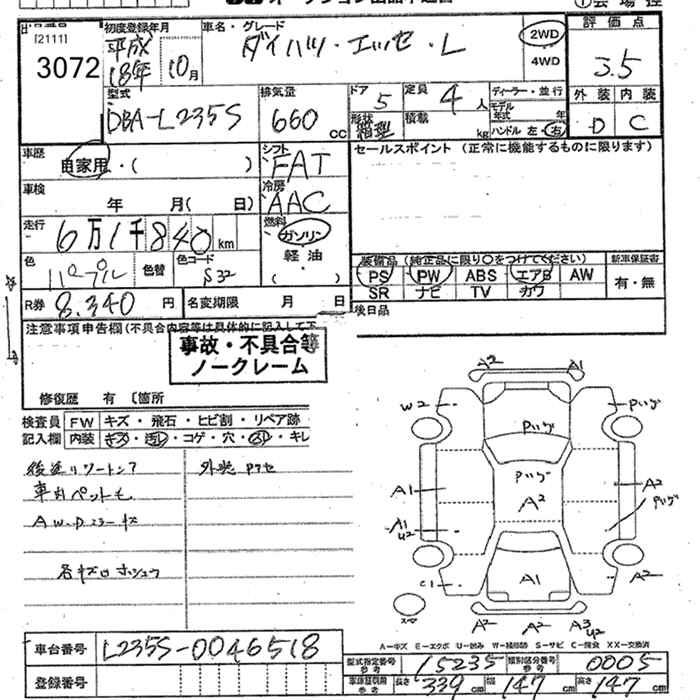 ①会場控
[2111]
3072
初度登録年月
平成
18年 10月
車名・グレード
ダイハツ・エッセ・L
2WD
4WD
評価点
3.5
外装 内装
D C
型式
DBA-L235S
排気量
660 cc
ドア 5
定員 4 人
形状 積載 kg
ディーラー・並行
モデル年式 年
ハンドル 左・右
車歴 自家用・( )
シフト FAT
セールスポイント (正常に機能するものに限ります)
車検 年 月( 日)
冷房 AAC
走行 6万1千840km
燃料 ガソリン
軽油
( )
色 パープル 色替 色コード S32
装備品 (純正品に限り○をつけてください) 新車保証書
PS PW ABS エアB AW 有・無
SR ナビ TV カワ
R券 8,340 円 名変期限 月 日
後日品
注意事項申告欄(不具合内容等は具体的に記入して下
事故・不具合等
ノークレーム
修復歴 有 〔箇所
検査員 FW キズ・飛石・ヒビ割・リペア跡
記入欄 内装 キズ・汚レ・コゲ・穴・スレ・キレ
A2 A1
W2 Pハゲ
Pハゲ
Pハゲ
A1 A2 A2
Pハゲ
A1
U2
C1 A1 A2
A2 A2 A3
U2
A-キズ E-エクボ U-凹み W-補修跡 S-サビ C-腐食 XX-交換済
車台番号 L235S-0046518
型式指定番号 参考 15235 類別区分番号 参考 0005
登録番号
長さ 339 cm 幅 147 cm 高さ 147 cm